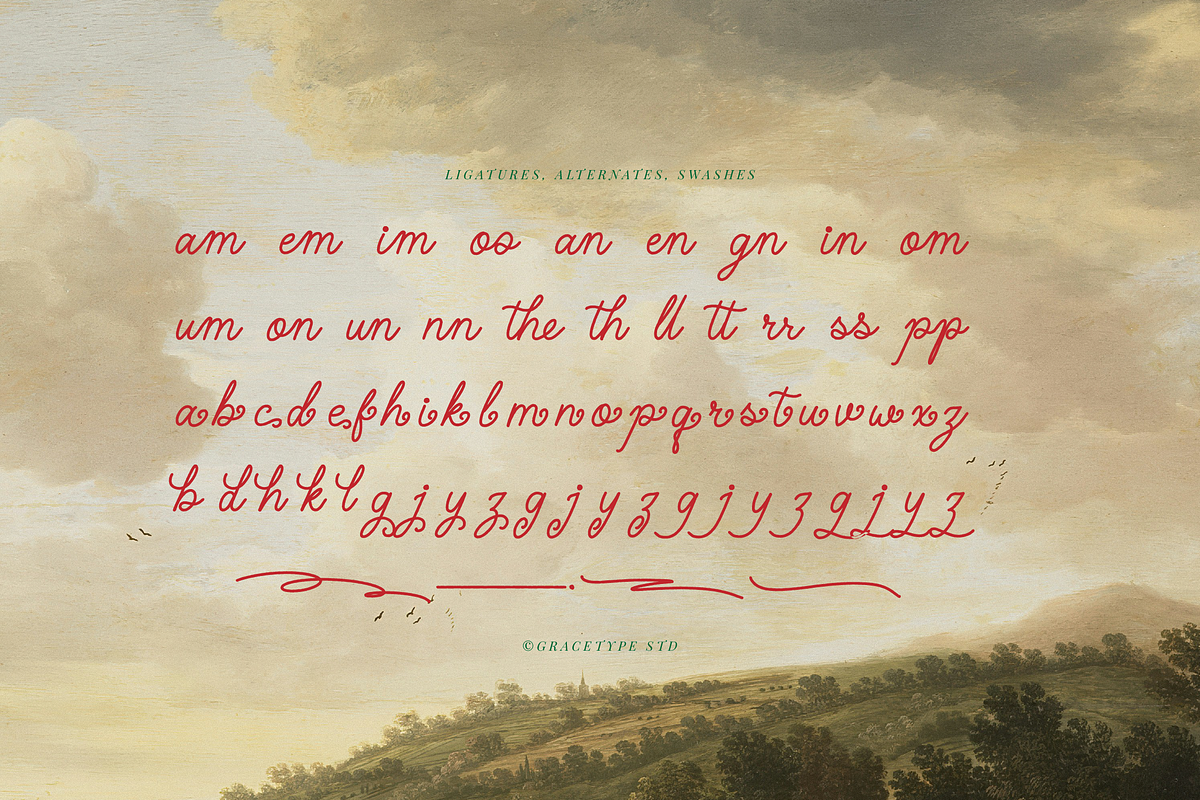 LIGATURES, ALTERNATES, SWASHES
am em im os an en gn in om
um on un nn the th ll tt rr ss pp
a b c d e f h i k l m n o p q r s t u v w x z
b d h k l g j y z g j y z g j y z g j y z
©GRACETYPE STD